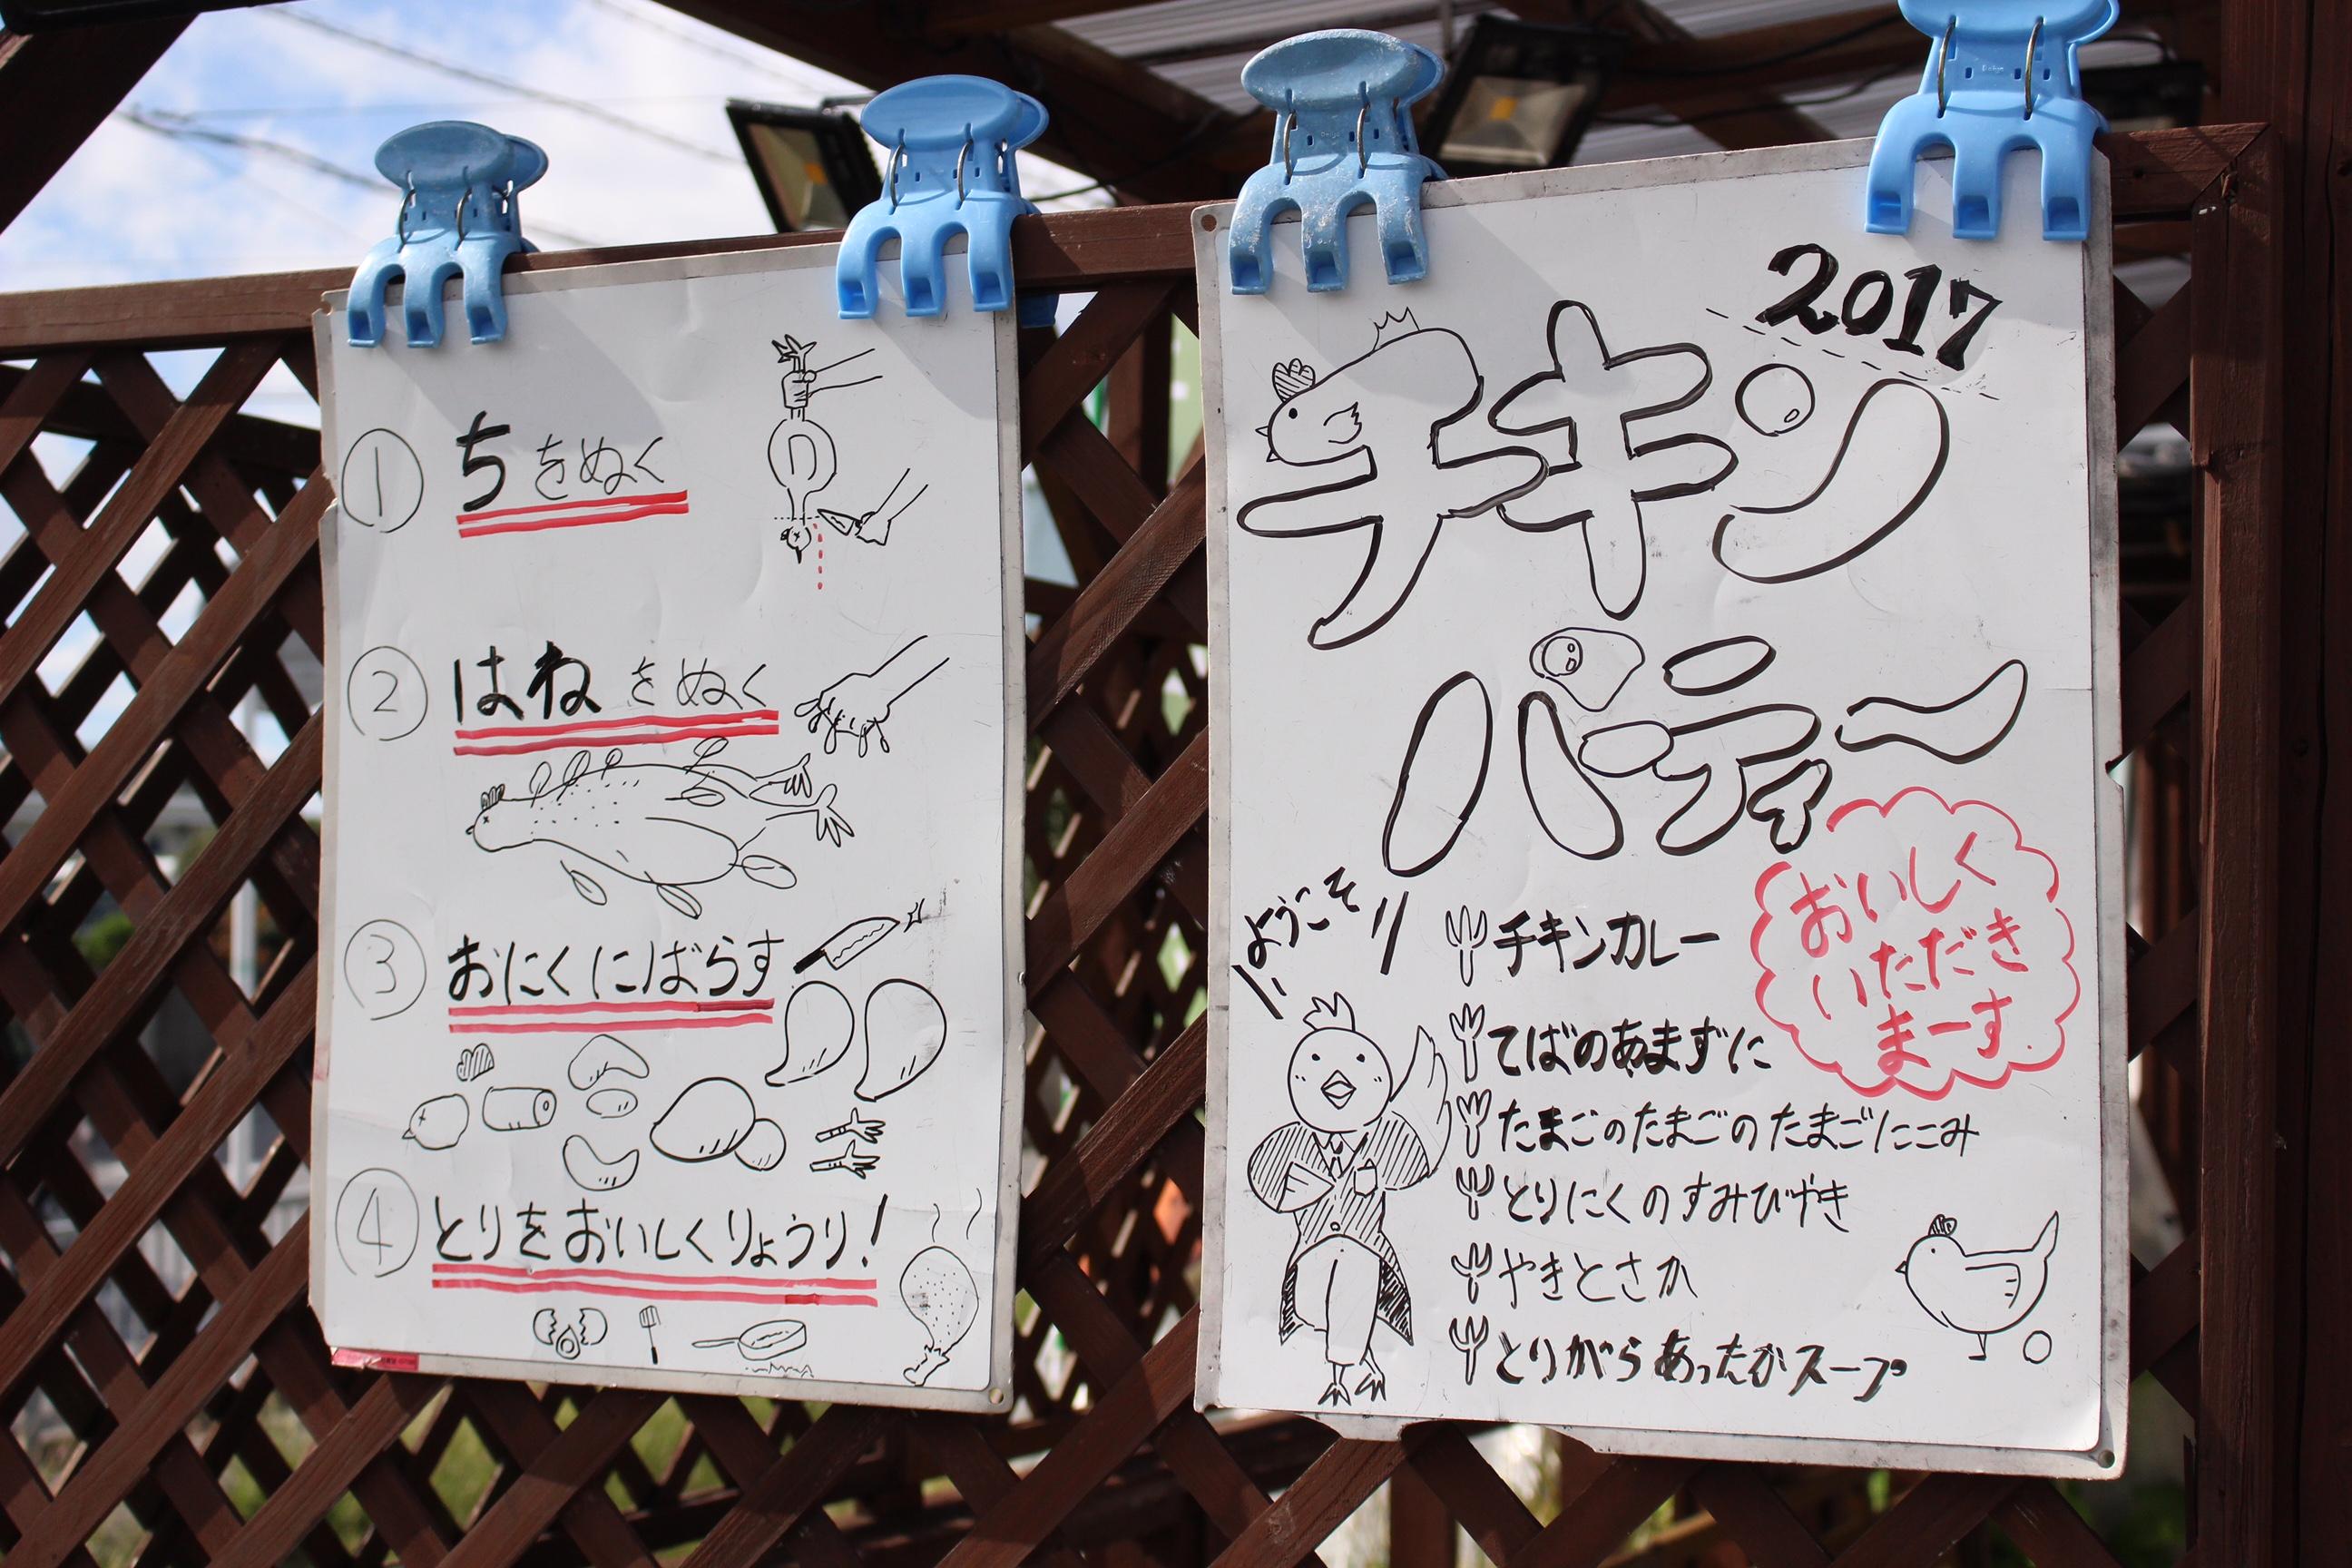 ① ちをぬく
② はねをぬく
③ おにくにばらす
④ とりをおいしくりょうり!
2017
チキン
パティー
ようこそ
おいしく
いただき
まーす
チキンカレー
てばのあまずに
たまごのたまごのたまごにこみ
とりにくのすみびやき
やきとさか
とりがらあったかスープ